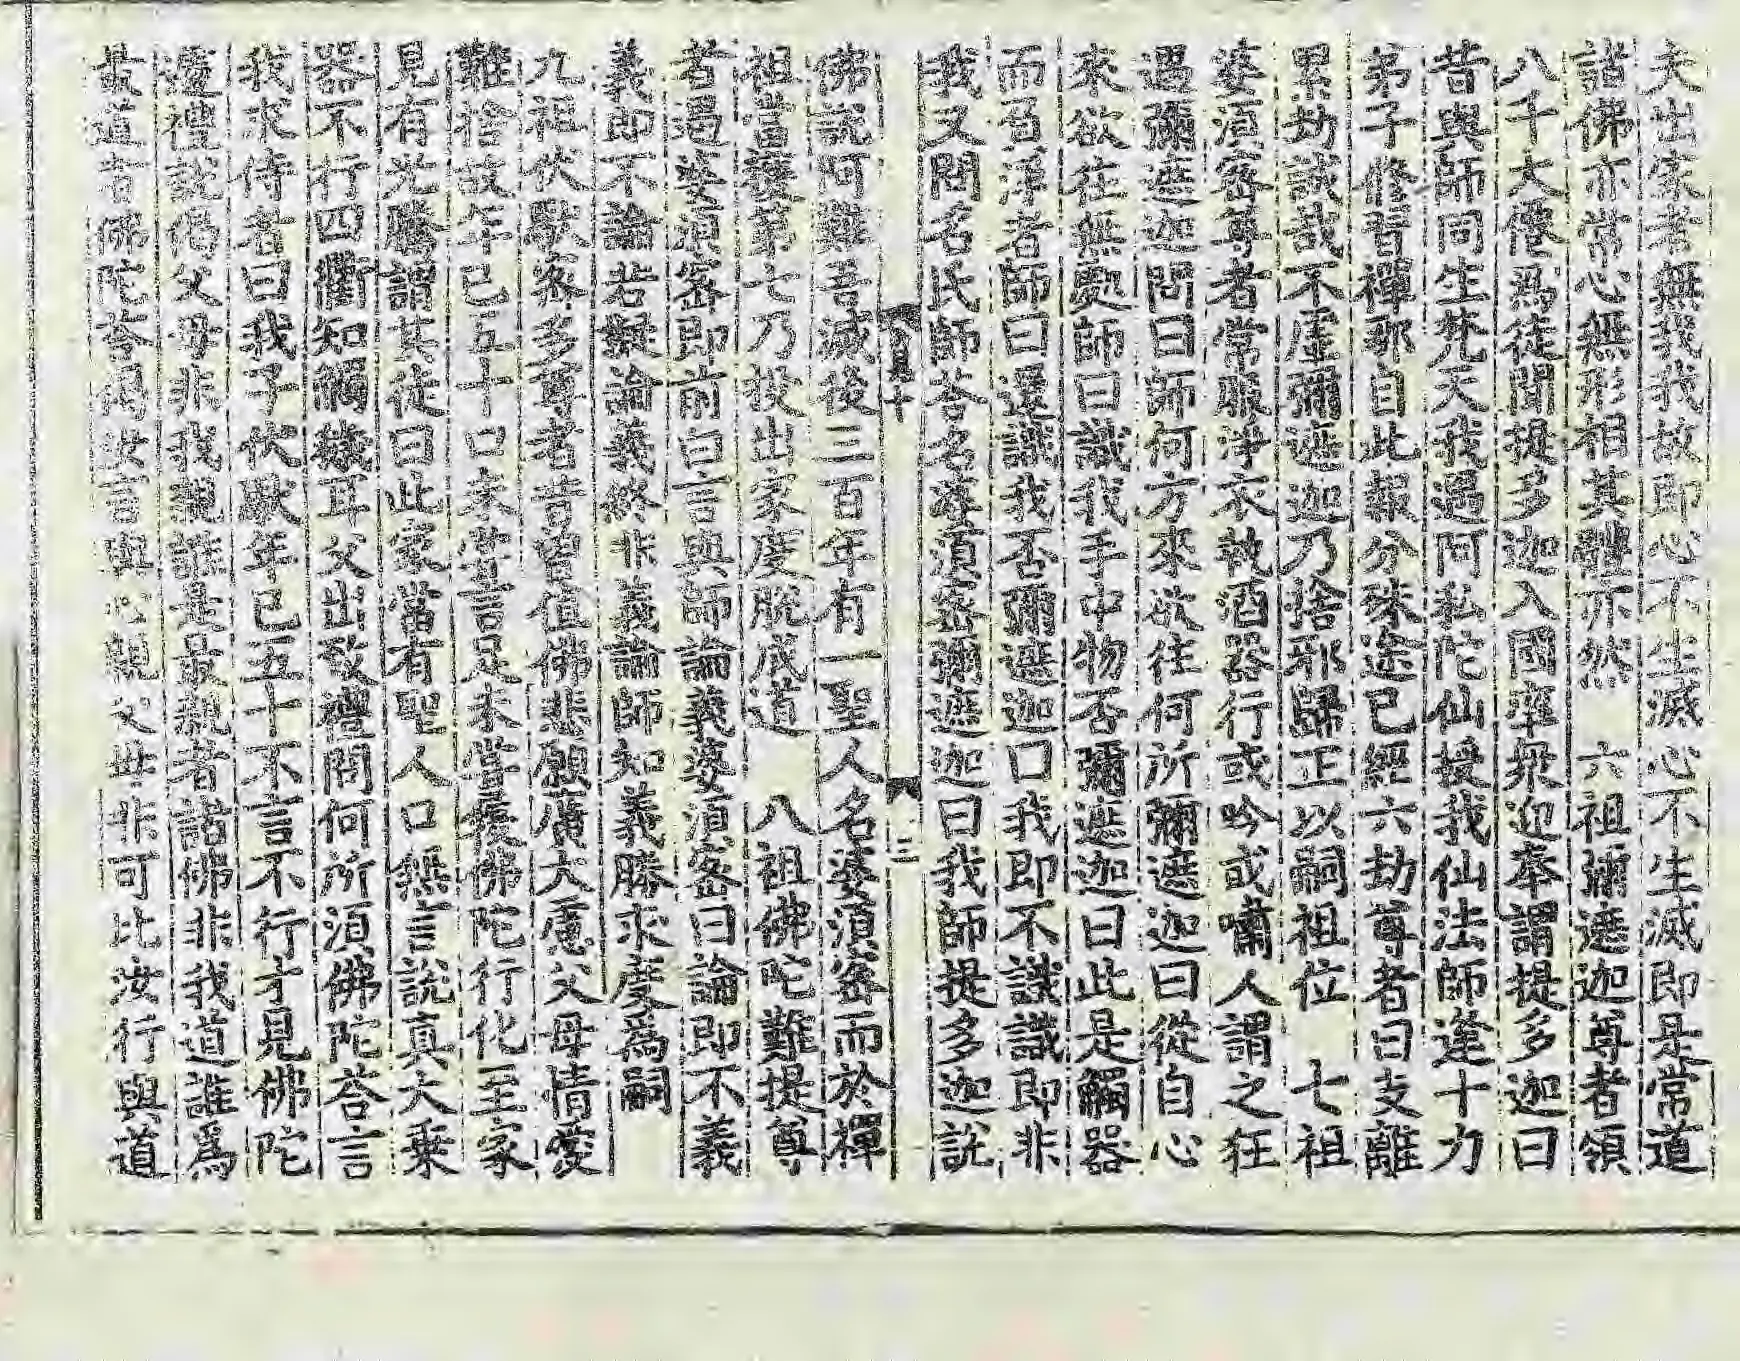 夫出家者無我我故即心不生滅心不生滅即是常道
諸佛亦常心無形相其體亦然　六祖彌遮迦尊者領
八千大僊爲徒聞提多迦入國率衆迎奉謂提多迦曰
昔與師同生梵天我遇阿私陀仙授我仙法師逢十力
弟子修習禪那自此報分殊途已經六劫尊者曰支離
累劫誠哉不虛彌遮迦乃捨邪歸正以嗣祖位　七祖
婆須密尊者常服淨衣執酒器行或吟或嘯人謂之狂
遇彌遮迦問曰師何方來欲往何所彌遮迦曰從自心
來欲往無處師曰識我手中物否彌遮迦曰此是觸器
而負淨者師曰還識我否彌遮迦曰我即不識識即非
我又問名氏師答名婆須密彌遮迦曰我師提多迦說
佛說阿難吾滅後三百年有一聖人名婆須密而於禪
祖當獲第七乃投出家度脫成道　八祖佛陀難提尊
者遇婆須密即前白言與師論義婆須密曰論即不義
義即不論若擬論義終非義論師知義勝求度爲嗣
九祖伏馱密多尊者昔曾值佛悲願廣大慮父母情愛
難捨故年已五十口未嘗言足未嘗履佛陀行化至家
見有光騰謂其徒曰此家當有聖人口無言說真大乘
器不行四衢知觸穢耳父出致禮問何所須佛陀荅言
我求侍者曰我子伏馱年已五十不言不行才見佛陀
遽禮說偈父母非我親誰是最親者諸佛非我道誰爲
最道者佛陀答偈汝言與心親父母非可比汝行與道